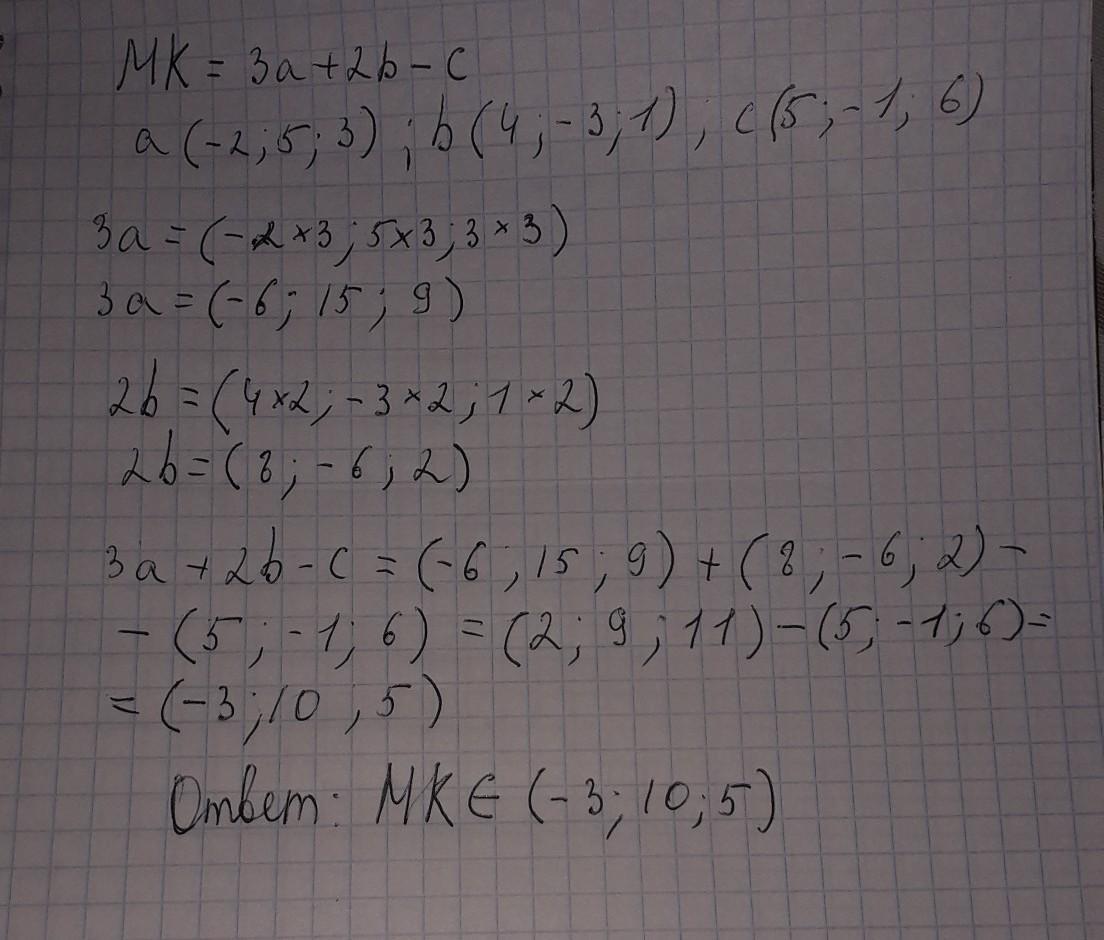 MK = 3a + 2b - c
a (-2; 5; 3) ; b (4; -3; 1) ; c (5; -1; 6)
3a = (-2 × 3; 5 × 3; 3 × 3)
3a = (-6; 15; 9)
2b = (4 × 2; -3 × 2; 1 × 2)
2b = (8; -6; 2)
3a + 2b - c = (-6; 15; 9) + (8; -6; 2) -
- (5; -1; 6) = (2; 9; 11) - (5; -1; 6) =
= (-3; 10; 5)
Ответ: MK ∈ (-3; 10; 5)